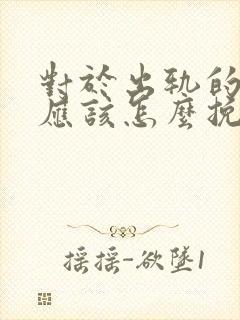 對於出軌的
應該怎麼挽
摇摇-欲墜1